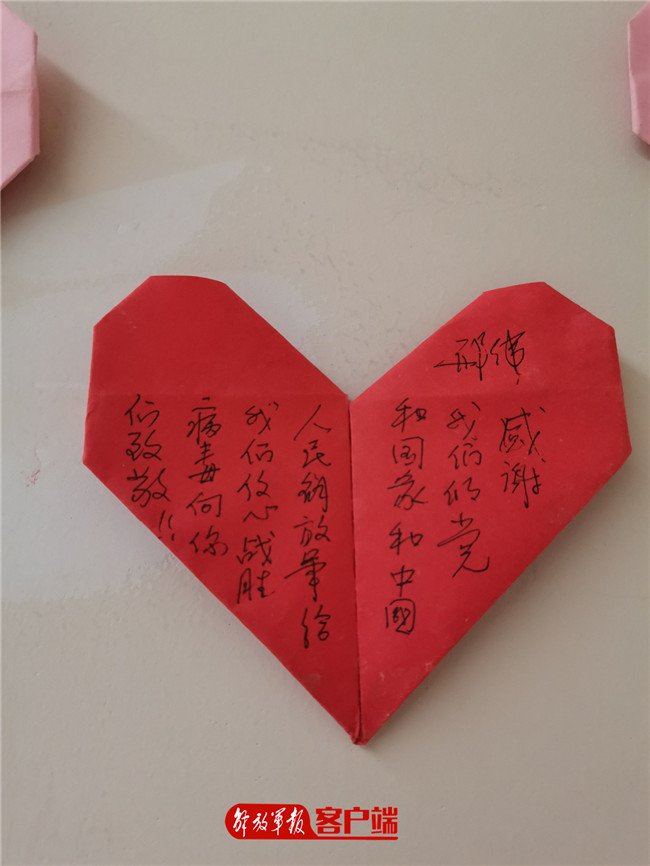 邢伟
感谢
我们的党
和国家和中國
人民解放军给
我们信心战胜
病毒向你
们致敬!!
解放军报 客户端